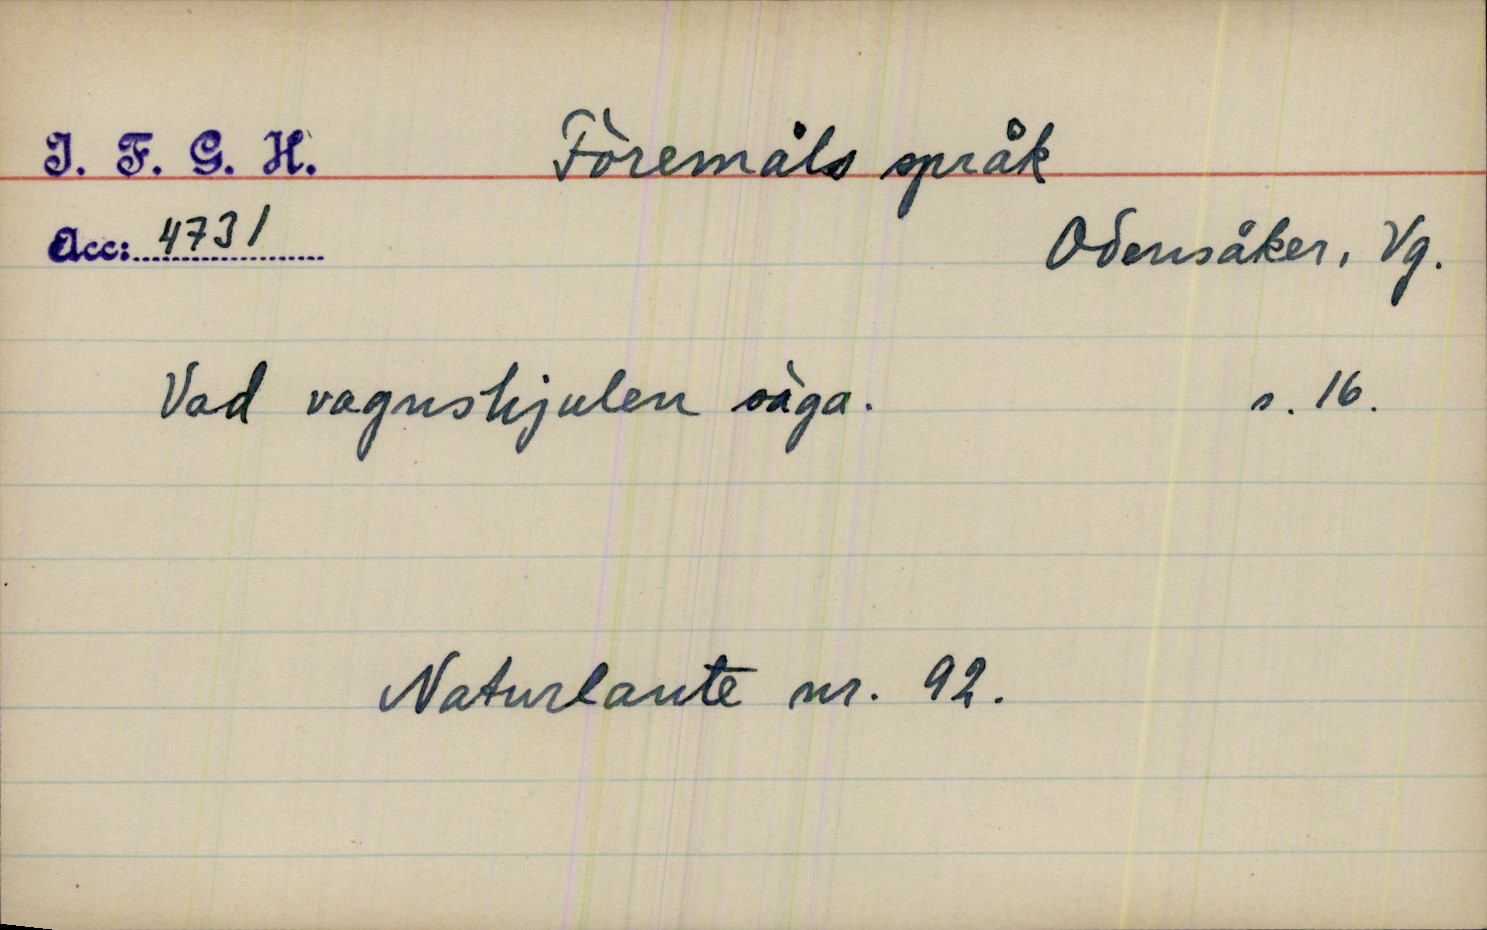 I. F. G. H.
Föremåls språk
Acc: 4731
Odensåker, Vg.
Vad vagnshjulen säga. s. 16.
Naturlaute nr. 92.